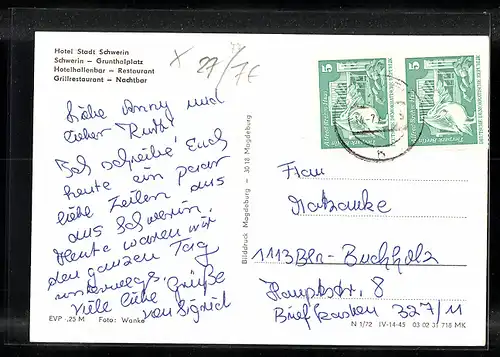 Hotel Stadt Schwerin
Schwerin – Grunthalplatz
Hotelhallenbar – Restaurant
Grillrestaurant – Nachtbar
x 27/7E
5
5
Alfred Brehm Haus
Tierpark Berlin
DEUTSCHE DEMOKRATISCHE REPUBLIK
Liebe Anny und
lieber Rudi!
Ich schreibe Euch
heute ein paar
liebe Zeilen aus
aus Schwerin.
Heute waren wir
den ganzen Tag
unterwegs.
Viele liebe Grüße
von Sigrid
Bilddruck Magdeburg – 3018 Magdeburg
Frau
Matzanke
1113 Bln-Buchholz
Hauptstr. 8
Briefkasten 327/11
EVP -,25 M Foto: Wanke
N 1/72 IV-14-45 03 02 31 718 MK